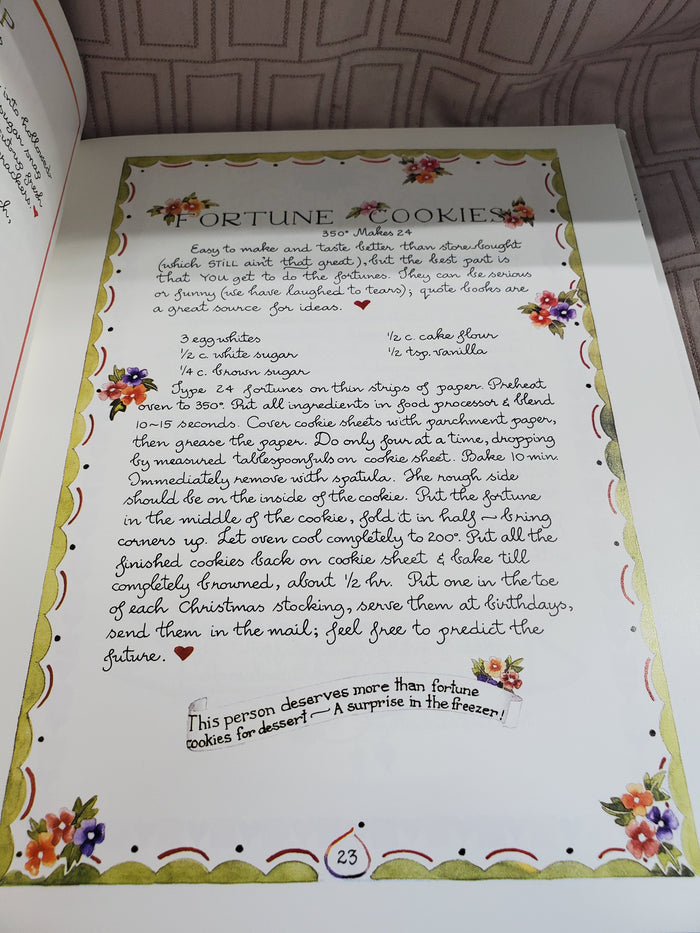 into hollows
sugar may
FORTUNE COOKIES
350° Makes 24
Easy to make and taste better than store bought
(which STILL ain't that great), but the best part is
that YOU get to do the fortunes. They can be serious
or funny (we have laughed to tears); quote books are
a great source for ideas. ♥
3 egg whites
½ c. white sugar
¼ c. brown sugar
½ c. cake flour
½ tsp. vanilla
Type 24 fortunes on thin strips of paper. Preheat
oven to 350°. Put all ingredients in food processor & blend
10~15 seconds. Cover cookie sheets with parchment paper,
then grease the paper. Do only four at a time, dropping
by measured tablespoonfuls on cookie sheet. Bake 10 min.
Immediately remove with spatula. The rough side
should be on the inside of the cookie. Put the fortune
in the middle of the cookie, fold it in half ~ bring
corners up. Let oven cool completely to 200°. Put all the
finished cookies back on cookie sheet & bake till
completely browned, about ½ hr. Put one in the toe
of each Christmas stocking, serve them at birthdays,
send them in the mail; feel free to predict the
future. ♥
This person deserves more than fortune
cookies for dessert ~ A surprise in the freezer!
23